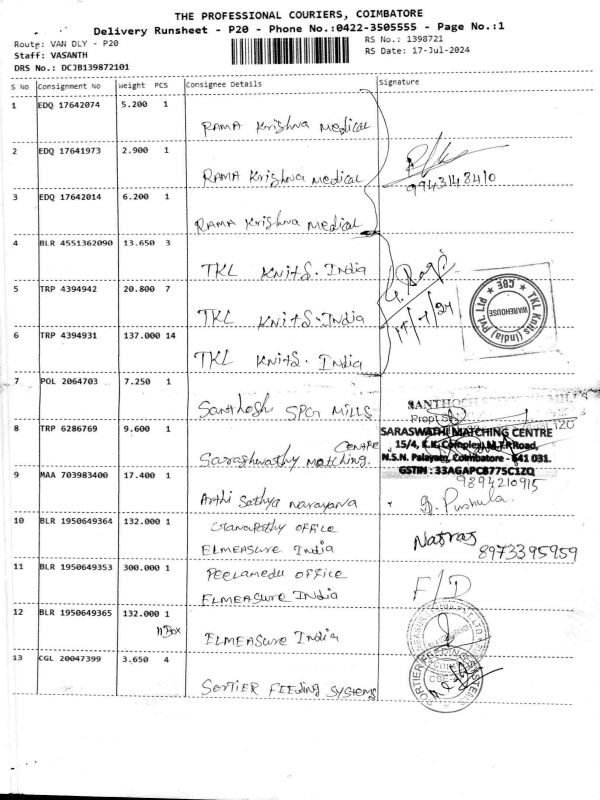 THE PROFESSIONAL COURIERS, COIMBATORE
Delivery Runsheet - P20 - Phone No.:0422-3505555 - Page No.:1
Route: VAN DLY - P20
RS No.: 1398721
Staff: VASANTH
RS Date: 17-Jul-2024
DRS No.: DCJB139872101
S No Consignment No Weight PCS Consignee Details Signature
1 EDQ 17642074 5.200 1
RAMA Krishna Medical
2 EDQ 17641973 2.900 1
RAMA Krishna Medical
9943148410
3 EDQ 17642014 6.200 1
RAMA Krishna Medical
4 BLR 4551362090 13.650 3
TKL Knits. India
5 TRP 4394942 20.800 7
TKL Knits. India
17/7/24
TKL Knits (India) Pvt. Ltd * CBE *
WAREHOUSE
6 TRP 4394931 137.000 14
TKL Knits. India
7 POL 2064703 7.250 1
Santhosh SPG MILLS
8 TRP 6286769 9.600 1
Sarashwathy matching. CENTRE
SARASWATHI MATCHING CENTRE
15/4, K.K. Complex, M.T.P. Road,
N.S.N. Palayam, Coimbatore - 641 031.
GSTIN : 33AGAPC8775C1ZQ
9 MAA 703983400 17.400 1
9894210915
Arthi Sathya narayana
10 BLR 1950649364 132.000 1
Ganapathy OFFICE
ELMEASURE India
Natraj
8973395959
11 BLR 1950649353 300.000 1
PEELAMEDU OFFICE
ELMEASURE INDIA
F/D
12 BLR 1950649365 132.000 1
11 Box
ELMEASURE India
13 CGL 20047399 3.650 4
SORTIER FEEDING SYSTEMS
SORTIER FEEDING SYSTEMS